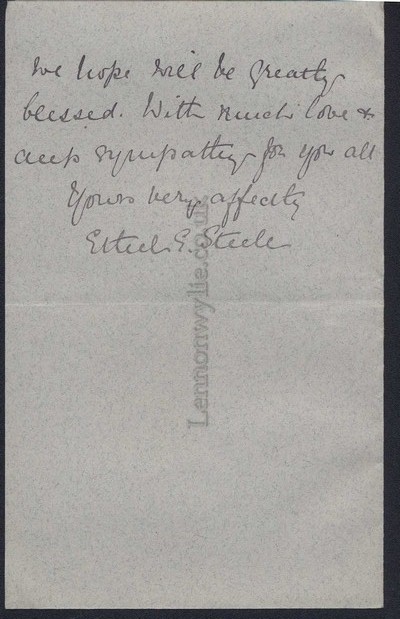 we hope will be greatly
blessed. With much love &
deep sympathy for you all
Yours very affectly
Ethel E. Steele
Lennonwylie.co.uk